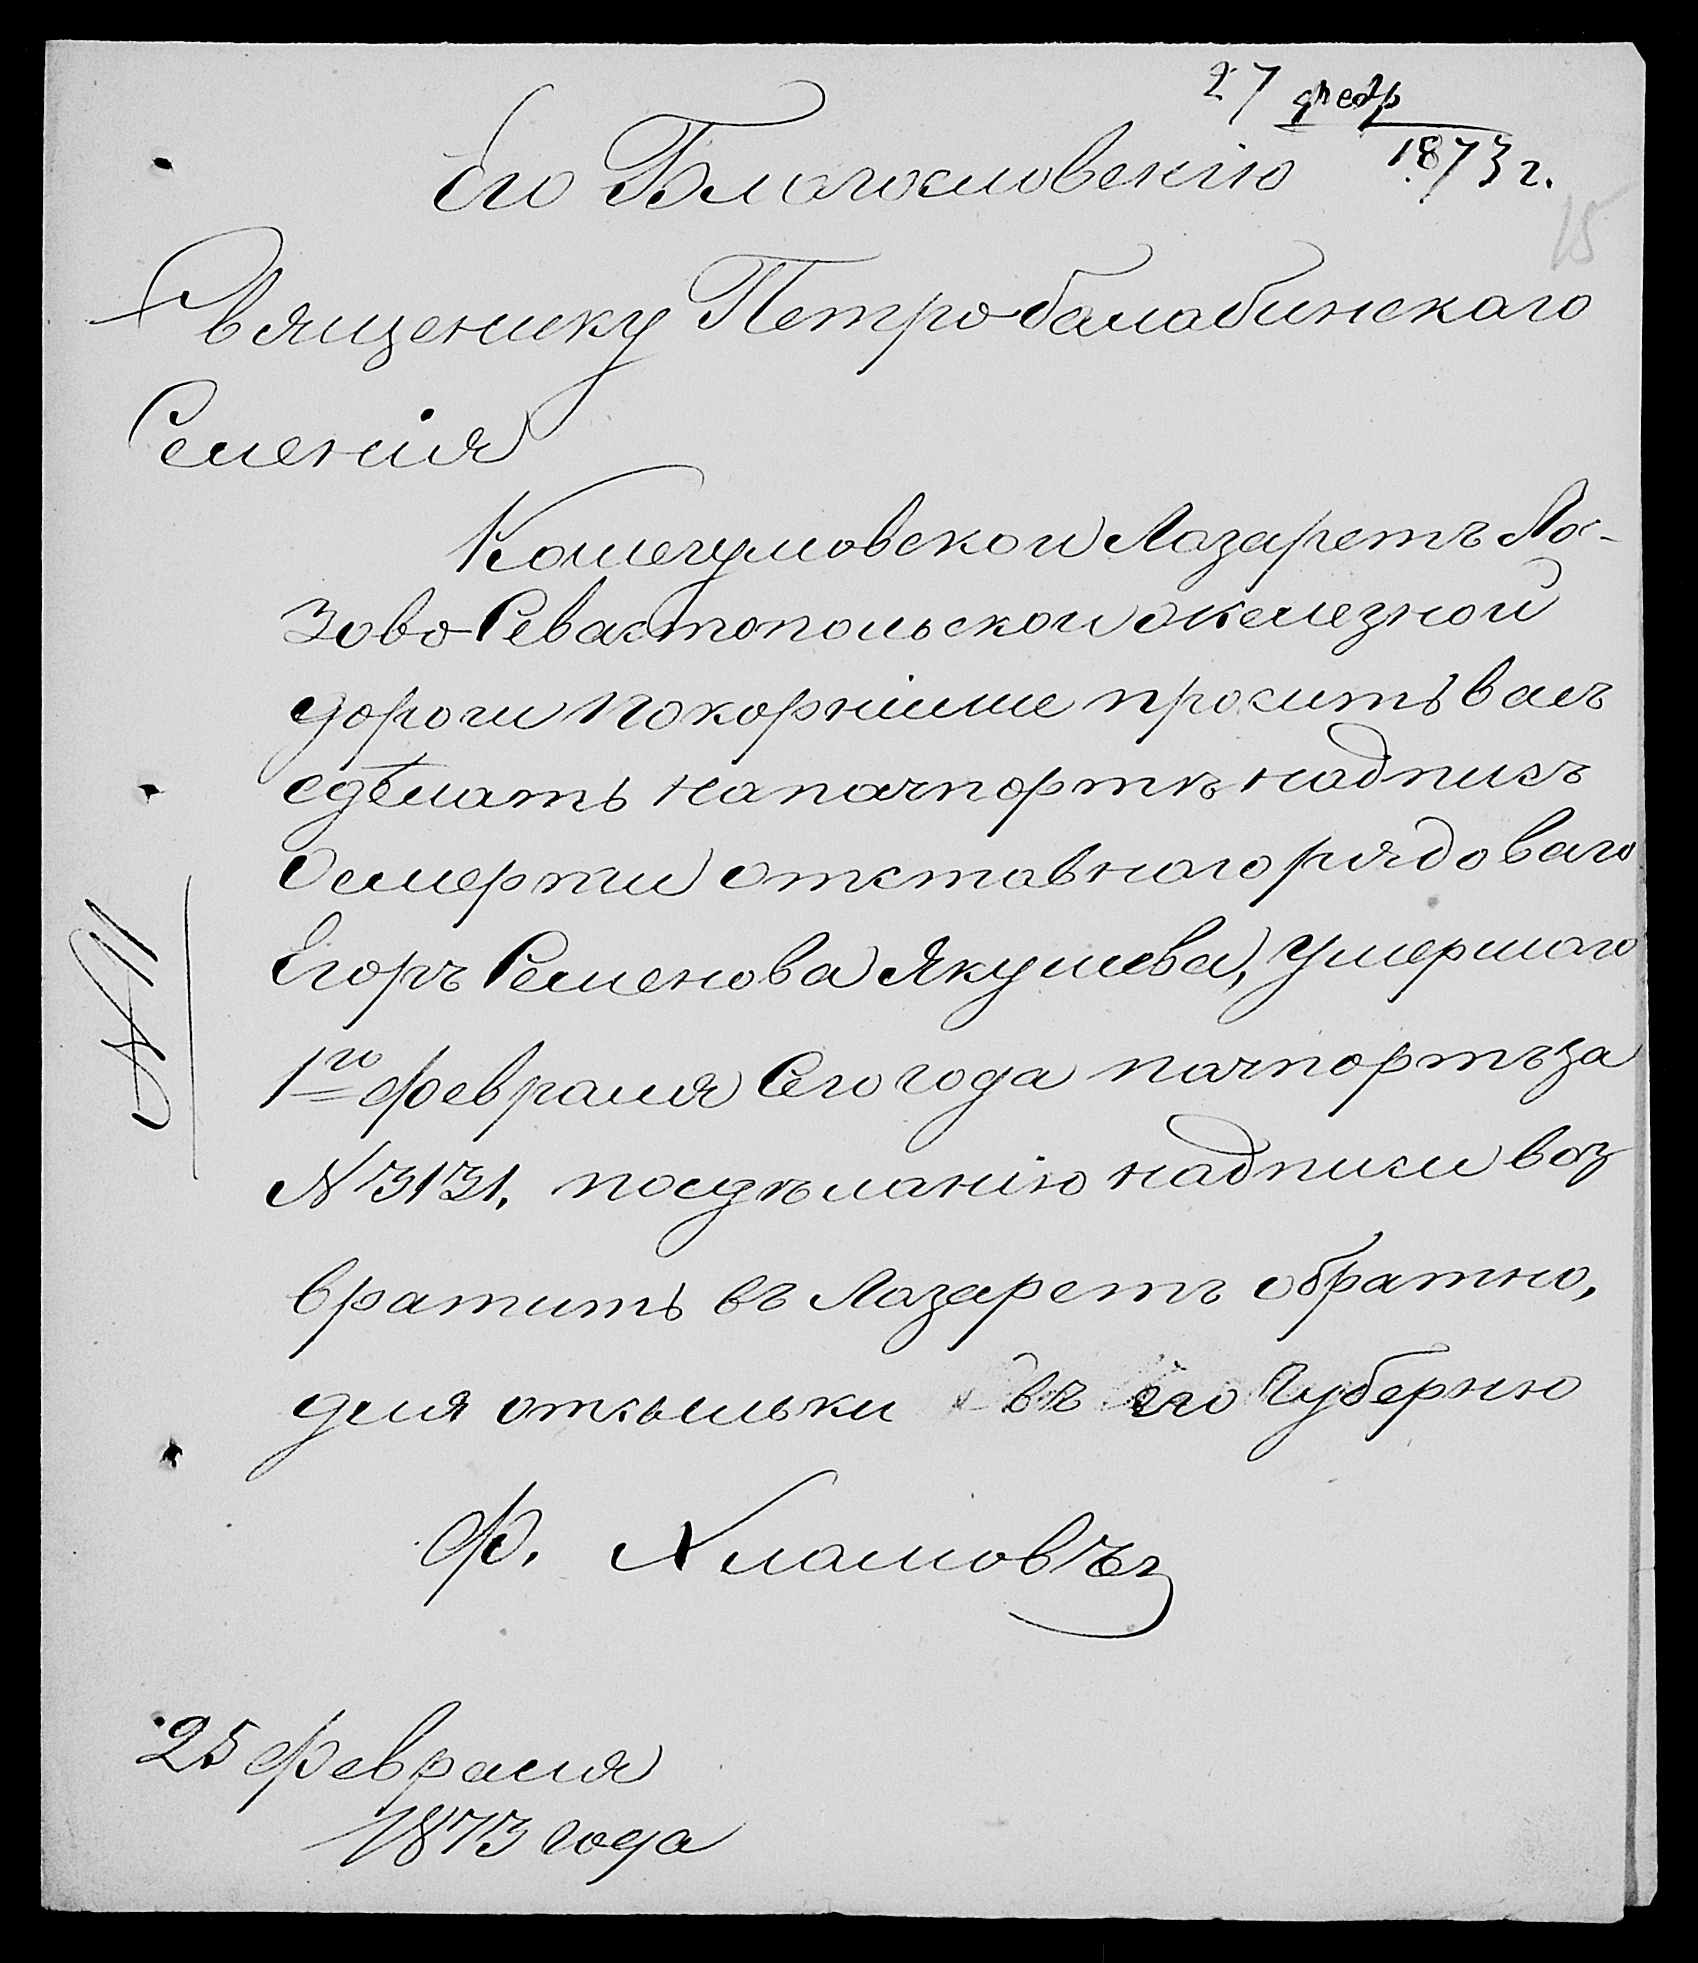 27 февр
1873 г.
15
Его Благословенію
Священику Петро-балабинскаго
Селенія
Кошегумовской Лазаретъ Ло-
Зово-Севастопольской железной
дороги покорнійше проситъ васъ
сдѣлать на пачпортѣ надпись
О смерти отставного рядоваго
Егоръ Семенова Якушева, Умершаго
1го февраля Сего года пачпортъ за
№ 3131. по сдѣланію надписи воз
вратить въ Лазаретъ обратно,
для отсылки въ его Губернію
Ф. Хламовъ
№ 11
25 февраля
1873 года